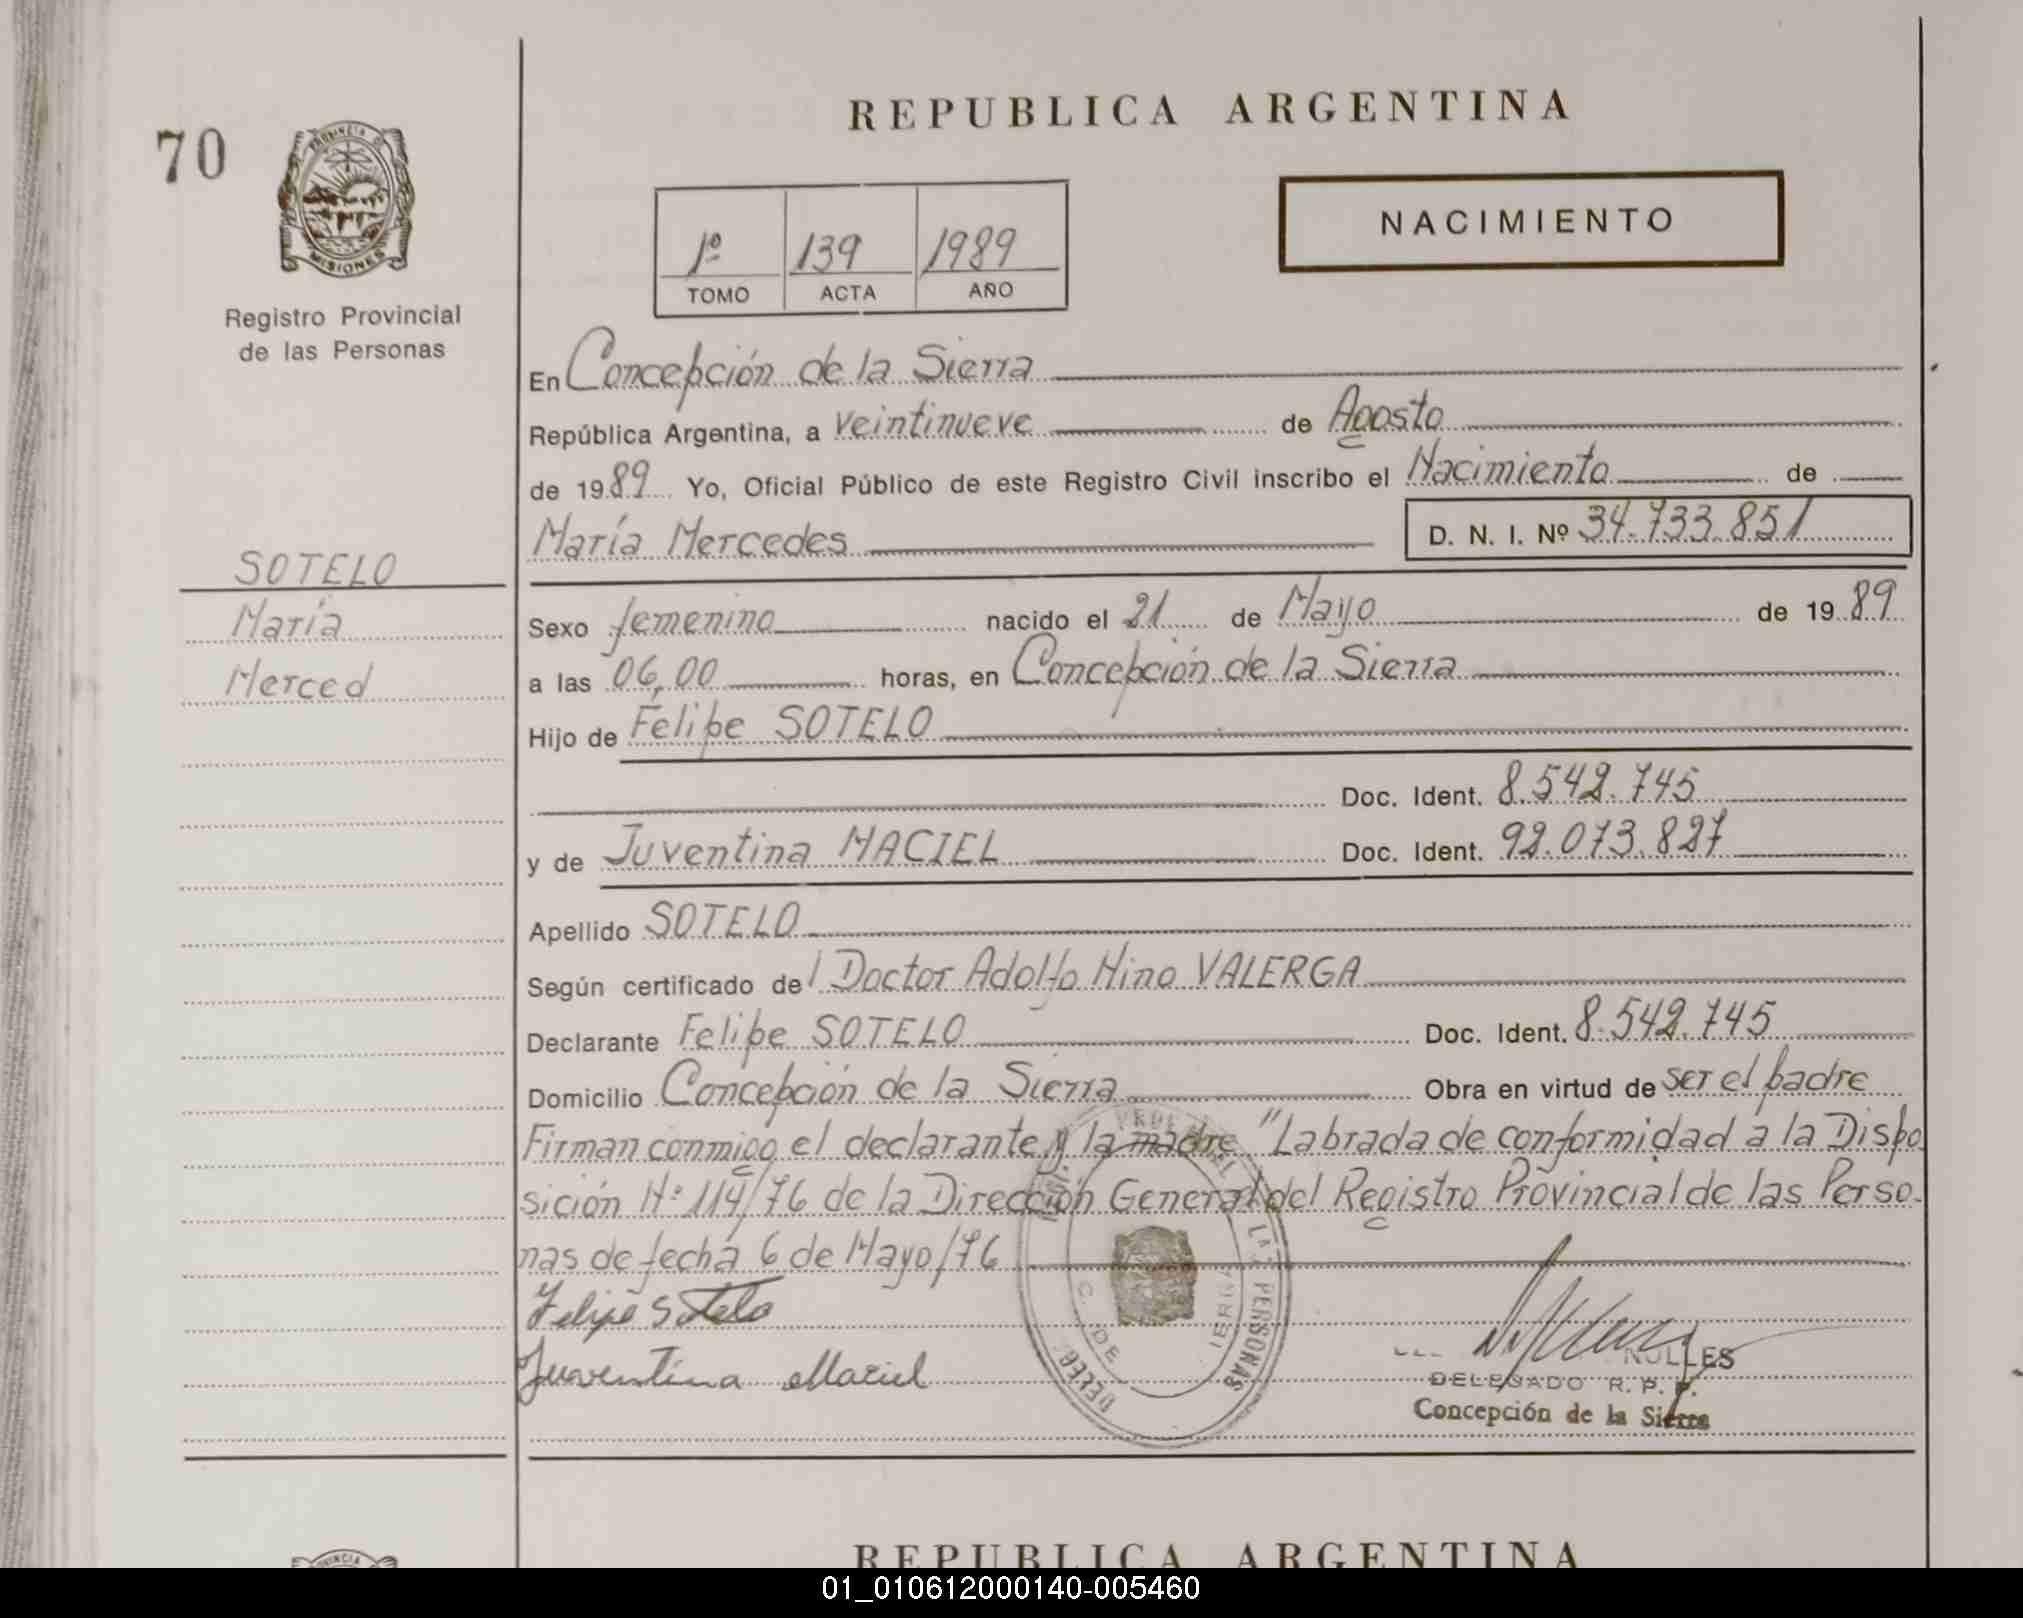 REPUBLICA ARGENTINA
70
PROVINCIA DE
MISIONES
NACIMIENTO
1º 139 1989
TOMO ACTA AÑO
Registro Provincial
de las Personas
En Concepción de la Sierra
República Argentina, a veintinueve de Agosto
de 1989 Yo, Oficial Público de este Registro Civil inscribo el Nacimiento de
María Mercedes D. N. I. Nº 34.733.851
SOTELO
María
Merced
Sexo femenino nacido el 21 de Mayo de 1989
a las 06,00 horas, en Concepción de la Sierra
Hijo de Felipe SOTELO
Doc. Ident. 8.542.745
y de Juventina MACIEL Doc. Ident. 92.073.827
Apellido SOTELO
Según certificado del Doctor Adolfo Nino VALERGA
Declarante Felipe SOTELO Doc. Ident. 8.542.745
Domicilio Concepción de la Sierra Obra en virtud de ser el padre
Firman conmigo el declarante y la madre "Labrada de conformidad a la Dispo
sición Nº 114/76 de la Dirección General del Registro Provincial de las Perso-
nas de fecha 6 de Mayo/76
Felipe Sotelo
Juventina Maciel
DELEG. LAS PERSONAS
C. DE IERRA
NULLES
DELEGADO R. P. P.
Concepción de la Sierra
PROVINCIA
REPUBLICA ARGENTINA
01_010612000140-005460